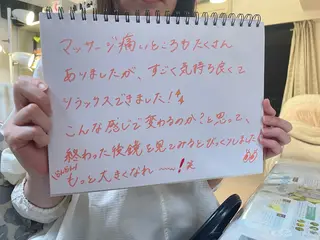 マッサージ痛いところもたくさん
ありましたが、すごく気持ち良くて
リラックスできました!
こんな感じで変わるのか?と思って、
終わった後鏡を見てみるとびっくりしました
もっと大きくなれ〜!笑